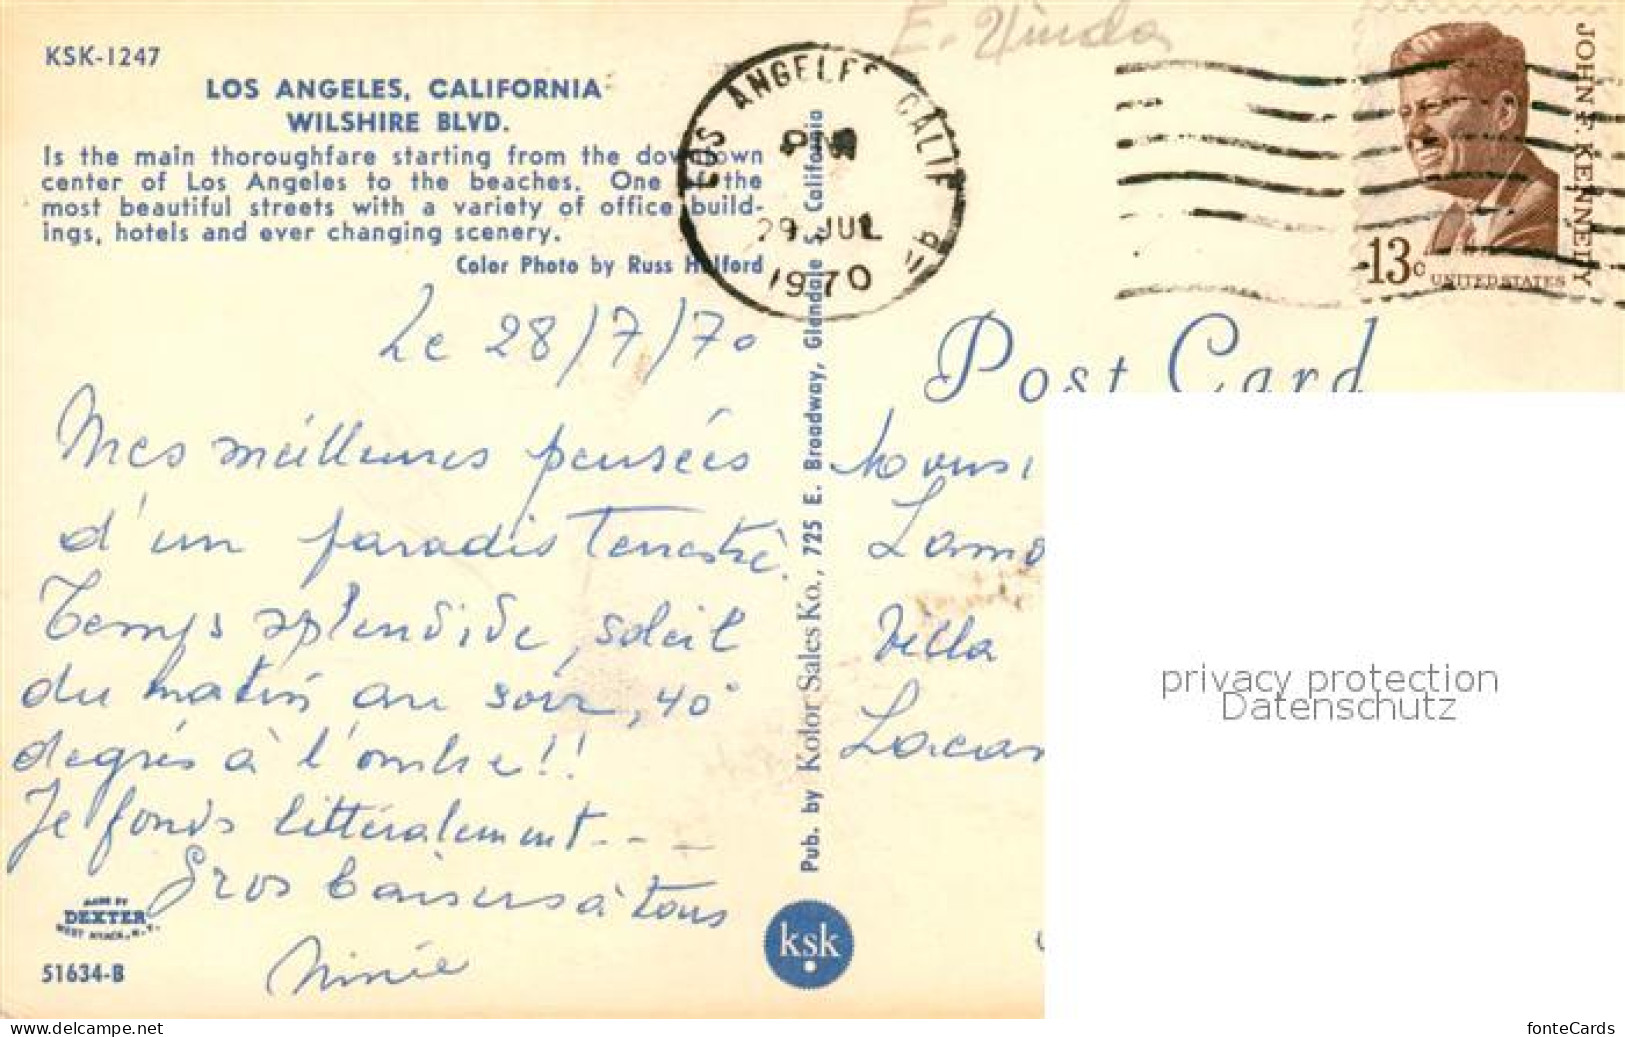 KSK-1247
LOS ANGELES, CALIFORNIA
WILSHIRE BLVD.
Is the main thoroughfare starting from the downtown
center of Los Angeles to the beaches. One of the
most beautiful streets with a variety of office build-
ings, hotels and ever changing scenery.
Color Photo by Russ Halford
Le 28/7/70
Mes meilleures pensées
d'un paradis Terrestre.
Temps splendide, soleil
du matin au soir, 40°
degrés à l'ombre!!
Je fonds littéralement---
Gros baisers à tous
Ninie
MADE BY
DEXTER
WEST NYACK, N.Y.
51634-B
Pub. by Kolor Sales Ko., 725 E. Broadway, Glendale 5, California
ksk
E.
LOS ANGELES CALIF
PM
29 JUL
1970
JOHN F. KENNEDY
13c
UNITED STATES
Post Card
Villa
privacy protection
Datenschutz
www.delcampe.net
fonteCards